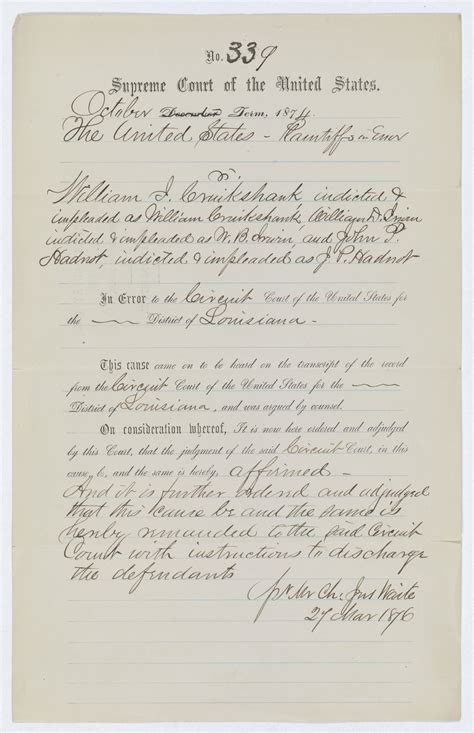 No. 339
Supreme Court of the United States.
October December Term, 1874.
The United States - Plaintiffs in Error
vs.
William J. Cruikshank, indicted &
impleaded as William Cruikshank, William D. Irwin
indicted & impleaded as W. B. Irwin, and John P.
Hadnot, indicted & impleaded as J. P. Hadnot
In Error to the Circuit Court of the United States for
the —— District of Louisiana -
This cause came on to be heard on the transcript of the record
from the Circuit Court of the United States for the ——
District of Louisiana, and was argued by counsel.
On consideration whereof, It is now here ordered and adjudged
by this Court, that the judgment of the said Circuit Court, in this
cause, be, and the same is hereby, affirmed -
And it is further ordered and adjudged
that this cause be and the same is
hereby remanded to the said Circuit
Court with instructions to discharge
the defendants
pr Mr Ch. Jus Waite
27 Mar 1876